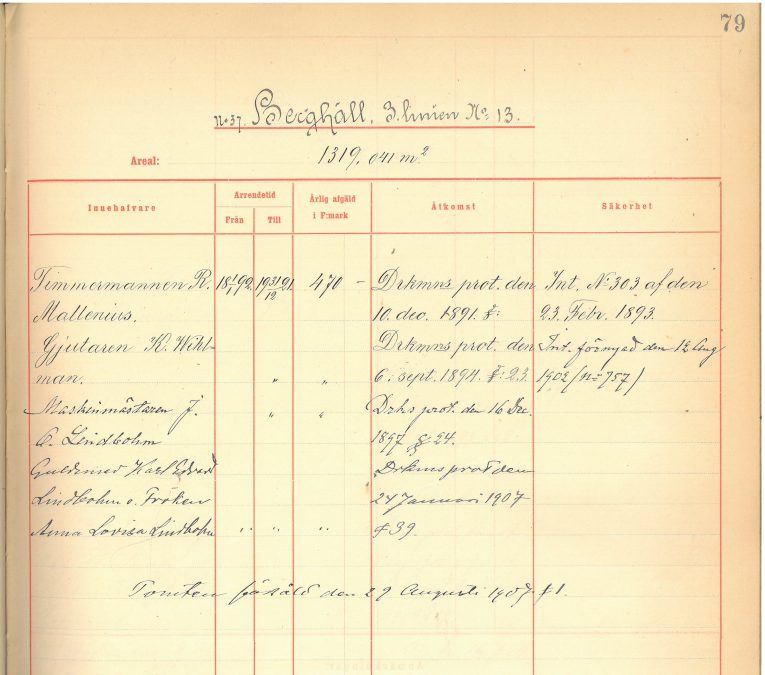 79
No 37. Berghäll, 3. linien No: 13.
Areal: 1319,041 m²
Innehafvare Arrendetid Årlig afgäld i F:mark Åtkomst Säkerhet
Från Till
Timmermannen R. 18 1/1 92. 19 31/12 21. 470 – Drkmns prot. den Int. No: 303 af den
Mallenius. 10. dec. 1891. §: 23. Febr. 1893.
Gjutaren K. Wihl- Drkmns prot. den Int. förnyad den 12 Aug
man. " " 6. sept. 1894. §: 23. 1902 (No 757)
Maskinmästaren J. " " Drhs prot. den 16 Dec.
A. Lindbohm 1897 §: 24.
Guldsmed Karl Edvard Drkmns prot den
Lindbohm o. Fröken 24 Januari 1907
Anna Lovisa Lindbohm " " " § 39.
Tomten försåld den 29 Augusti 1907 § 1.